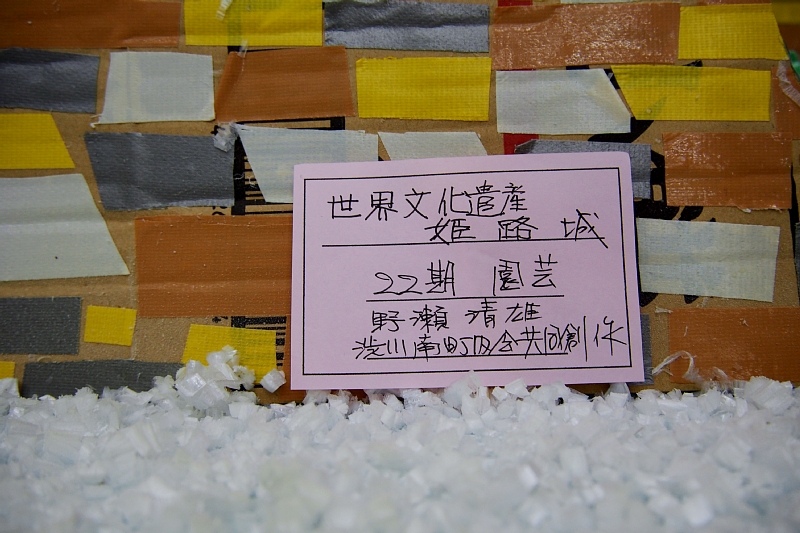 世界文化遺産
姫路城
22期 園芸
野瀬清雄
渋川南町辺会共同創作